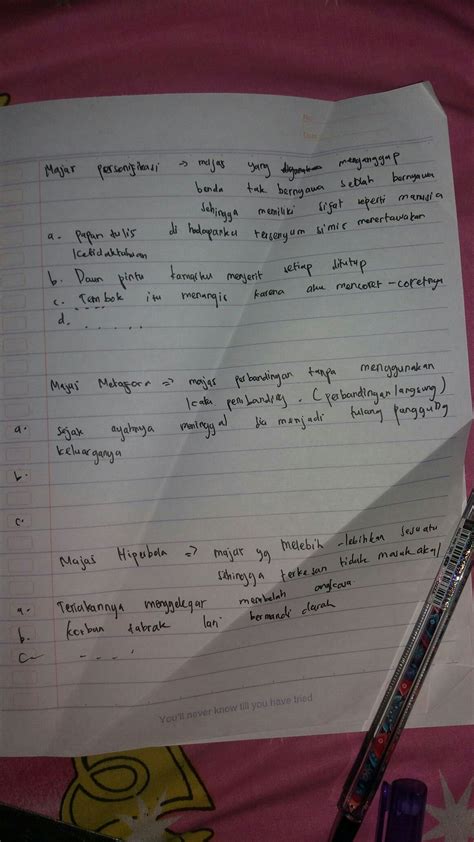 Majas personifikasi → majas yang menganggap
benda tak bernyawa seolah bernyawa
sehingga memiliki sifat seperti manusia
a. papan tulis di hadapanku tersenyum sinis menertawakan
ketidaktahuan
b. Daun pintu menjerit setiap ditutup
c. Tembok itu menangis karena aku mencoret-coretnya
d. .....
Majas Metafora => majas perbandingan tanpa menggunakan
kata pembanding. (perbandingan langsung)
a. Sejak ayahnya meninggal dia menjadi tulang punggung
keluarganya
b.
c.
Majas Hiperbola => majas yg melebih-lebihkan sesuatu
sehingga terkesan tidak masuk akal
a. Teriakannya menggelegar membelah angkasa
b. korban tabrak lari bermandi darah
c. .....
You'll never know till you have tried